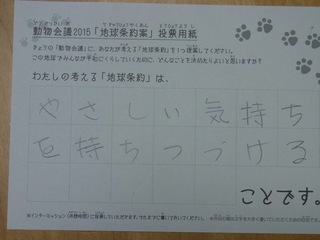 動物会議2015「地球条約案」投票用紙
きょうの「動物会議」に、あなたが考える「地球条約」を1つ提案してください。
この地球でみんなが平和にくらしていくために、どんなことを決めたらよいと思いますか?
わたしの考える「地球条約」は、
やさしい気持ち
を持ちつづける
ことです。